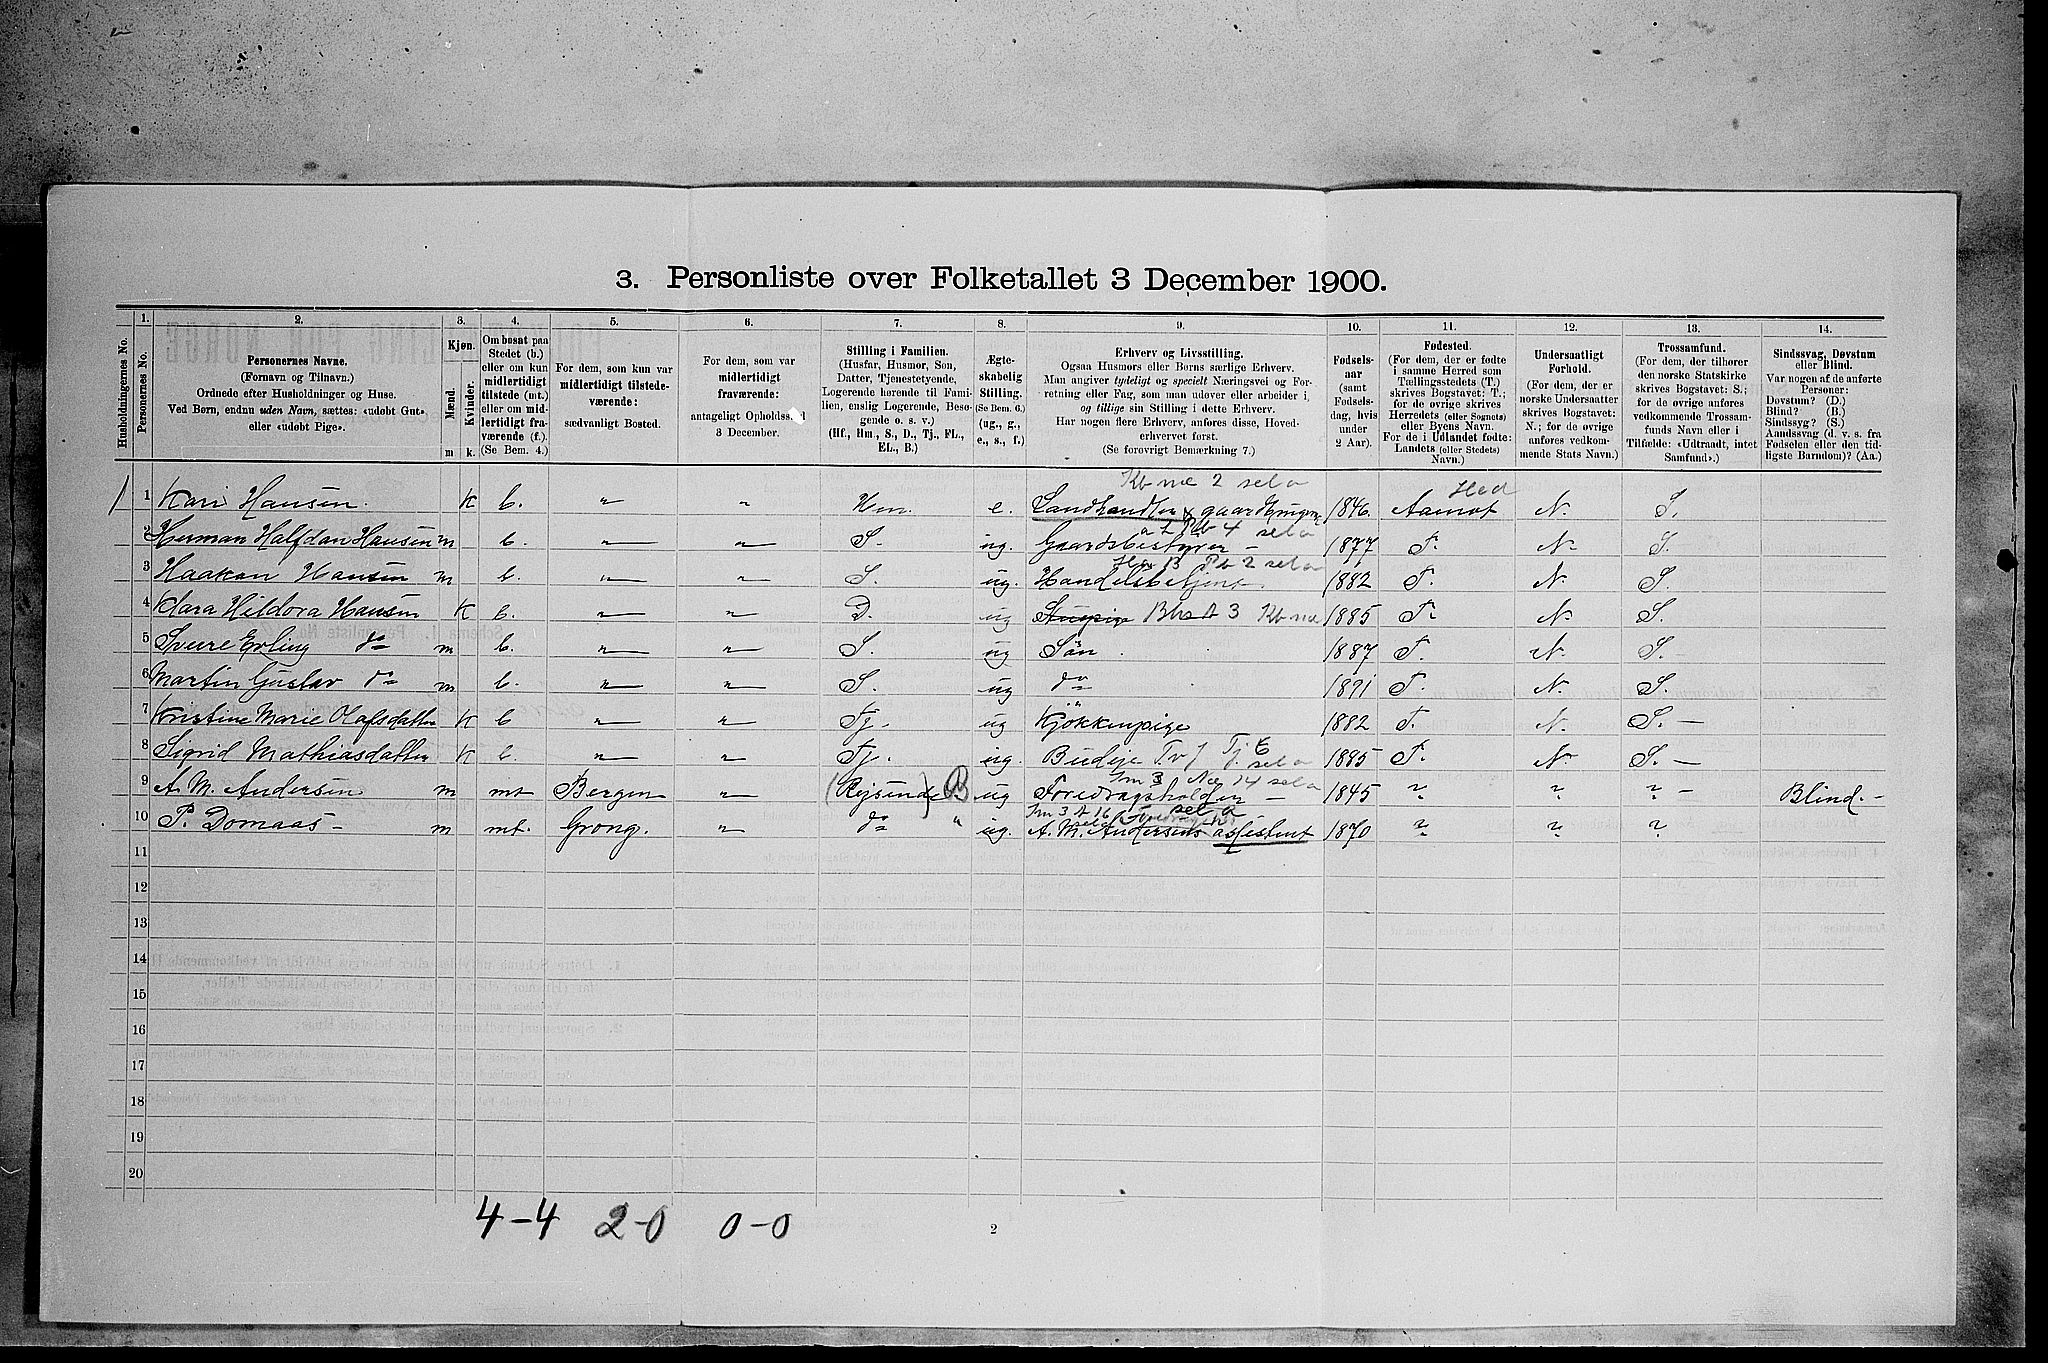 3. Personliste over Folketallet 3 December 1900.
Husholdningernes No.
1. Personernes No.
2. Personernes Navne.
(Fornavn og Tilnavn.)
Ordnede efter Husholdninger og Huse.
Ved Børn, endnu uden Navn, sættes: «udøbt Gut», eller «udøbt Pige».
3. Kjøn.
Mænd. m
Kvinder. k.
4. Om bosat paa Stedet (b.) eller om kun midlertidigt tilstede (mt.) eller om midlertidigt fraværende (f.) (Se Bem. 4.)
5. For dem, som kun var midlertidigt tilstedeværende:
sædvanligt Bosted.
6. For dem, som var midlertidigt fraværende:
antageligt Opholdssted 3 December.
7. Stilling i Familien.
(Husfar, Husmor, Søn, Datter, Tjenestetyende, Logerende hørende til Familien, enslig Logerende, Besøgende o. s. v.)
(Hf., Hm., S., D., Tj., FL., EL., B.)
8. Ægteskabelig Stilling.
(Se Bem. 6.)
(ug., g., e., s., f.)
9. Erhverv og Livsstilling.
Ogsaa Husmors eller Børns særlige Erhverv.
Man angiver tydeligt og specielt Næringsvei og Forretning eller Fag, som man udøver eller arbeider i, og tillige sin Stilling i dette Erhverv.
Har nogen flere Erhverv, anføres disse, Hovederhvervet først.
(Se forøvrigt Bemærkning 7.)
10. Fødselsaar (samt Fødselsdag, hvis under 2 Aar).
11. Fødested.
(For dem, der er fødte i samme Herred som Tællingsstedets (T.) skrives Bogstavet: T.; for de øvrige skrives Herredets (eller Sognets) eller Byens Navn.
For de i Udlandet fødte: Landets (eller Stedets) Navn.)
12. Undersaatligt Forhold.
(For dem, der er norske Undersaatter skrives Bogstavet: N.; for de øvrige anføres vedkommende Stats Navn.)
13. Trossamfund.
(For dem, der tilhører den norske Statskirke skrives Bogstavet: S.; for de øvrige anføres vedkommende Trossamfunds Navn eller i Tilfælde: «Udtraadt, intet Samfund».)
14. Sindssvag, Døvstum eller Blind.
Var nogen af de anførte Personer:
Døvstum? (D.)
Blind? (B.)
Sindssyg? (S.)
Aandssvag (d. v. s. fra Fødselen eller den tidligste Barndom)? (Aa.)
Kb me 2 sel a
Hed
1 Kari Hansen. K b. " " Hm. e. Landhandler & 1846. Aamot N. S.
a L Pb 4 sel a
2 Herman Halfdan Hansen m b. " " S. ug. Gaardsbestyrer 1877 T. N. S.
B Pb 2 sel a
3 Haakon Hansen m b. " " S. ug. Handelsbetjent 1882 T. N. S.
4 Klara Hildora Hansen K b. " " D. ug 3 Kb me 1885 T. N S.
5 Sverre Erling do m b. " " S. ug Søn 1887 T. N. S.
6 Martin Gustav do m b. " " S. ug do 1891 T. N. S.
7 Kristine Marie Olafsdatter K b " " Tj. ug Kjøkkenpige 1882 T. N. S. —
Tj. E sel a
8 Sigrid Mathiasdatter K b. " " Tj. ug. Budeje 1885 T. N S. —
Im 3 14 sel a
9 A. M. Andersen m mt Bergen " (Rejsende) B ug Foredragsholder — 1845 " " " — Blind. —
Im 3 A 16 sel a
10 P. Domaas — m mt. Grong. " do " ug. A. M. Andersens assistent 1870 " " "
11
12
13
14
15
16
17
18
19
20
4–4 2–0 0–0
2